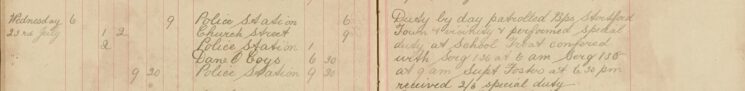 Wednesday 6 9 Police Station 6 Duty by day patrolled Bps Stortford
23rd July 1 2 Church Street 9 Town & vicinity & performed special
2 Police Station 1 duty at School Treat confered
Dane O Coys 6 30 with Serg 130 at 6 am Serg 158
9 30 Police Station 9 30 at 9 am Supt Foster at 6.30 pm
received 2/6 special duty